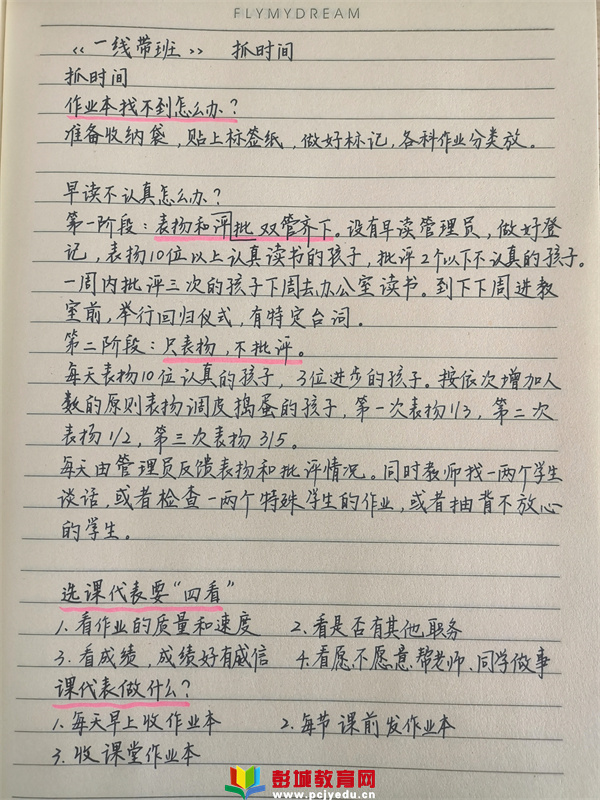 FLYMYDREAM
《一线带班》 抓时间
抓时间
作业本找不到怎么办?
准备收纳袋,贴上标签纸,做好标记,各科作业分类放。
早读不认真怎么办?
第一阶段:表扬和评批双管齐下。设有早读管理员,做好登
记,表扬10位以上认真读书的孩子,批评2个以下不认真的孩子。
一周内批评三次的孩子下周去办公室读书。到下下周进教
室前,举行回归仪式,有特定台词。
第二阶段:只表扬,不批评。
每天表扬10位认真的孩子,3位进步的孩子。按依次增加人
数的原则表扬调皮捣蛋的孩子,第一次表扬1/3,第二次
表扬1/2,第三次表扬3/5。
每天由管理员反馈表扬和批评情况。同时教师找一两个学生
谈话,或者检查一两个特殊学生的作业,或者抽背不放心
的学生。
选课代表要“四看”
1.看作业的质量和速度 2.看是否有其他职务
3.看成绩,成绩好有威信 4.看愿不愿意帮老师、同学做事
课代表做什么?
1.每天早上收作业本 2.每节课前发作业本
3.收课堂作业本
彭城教育网
www.pcjyedu.cn